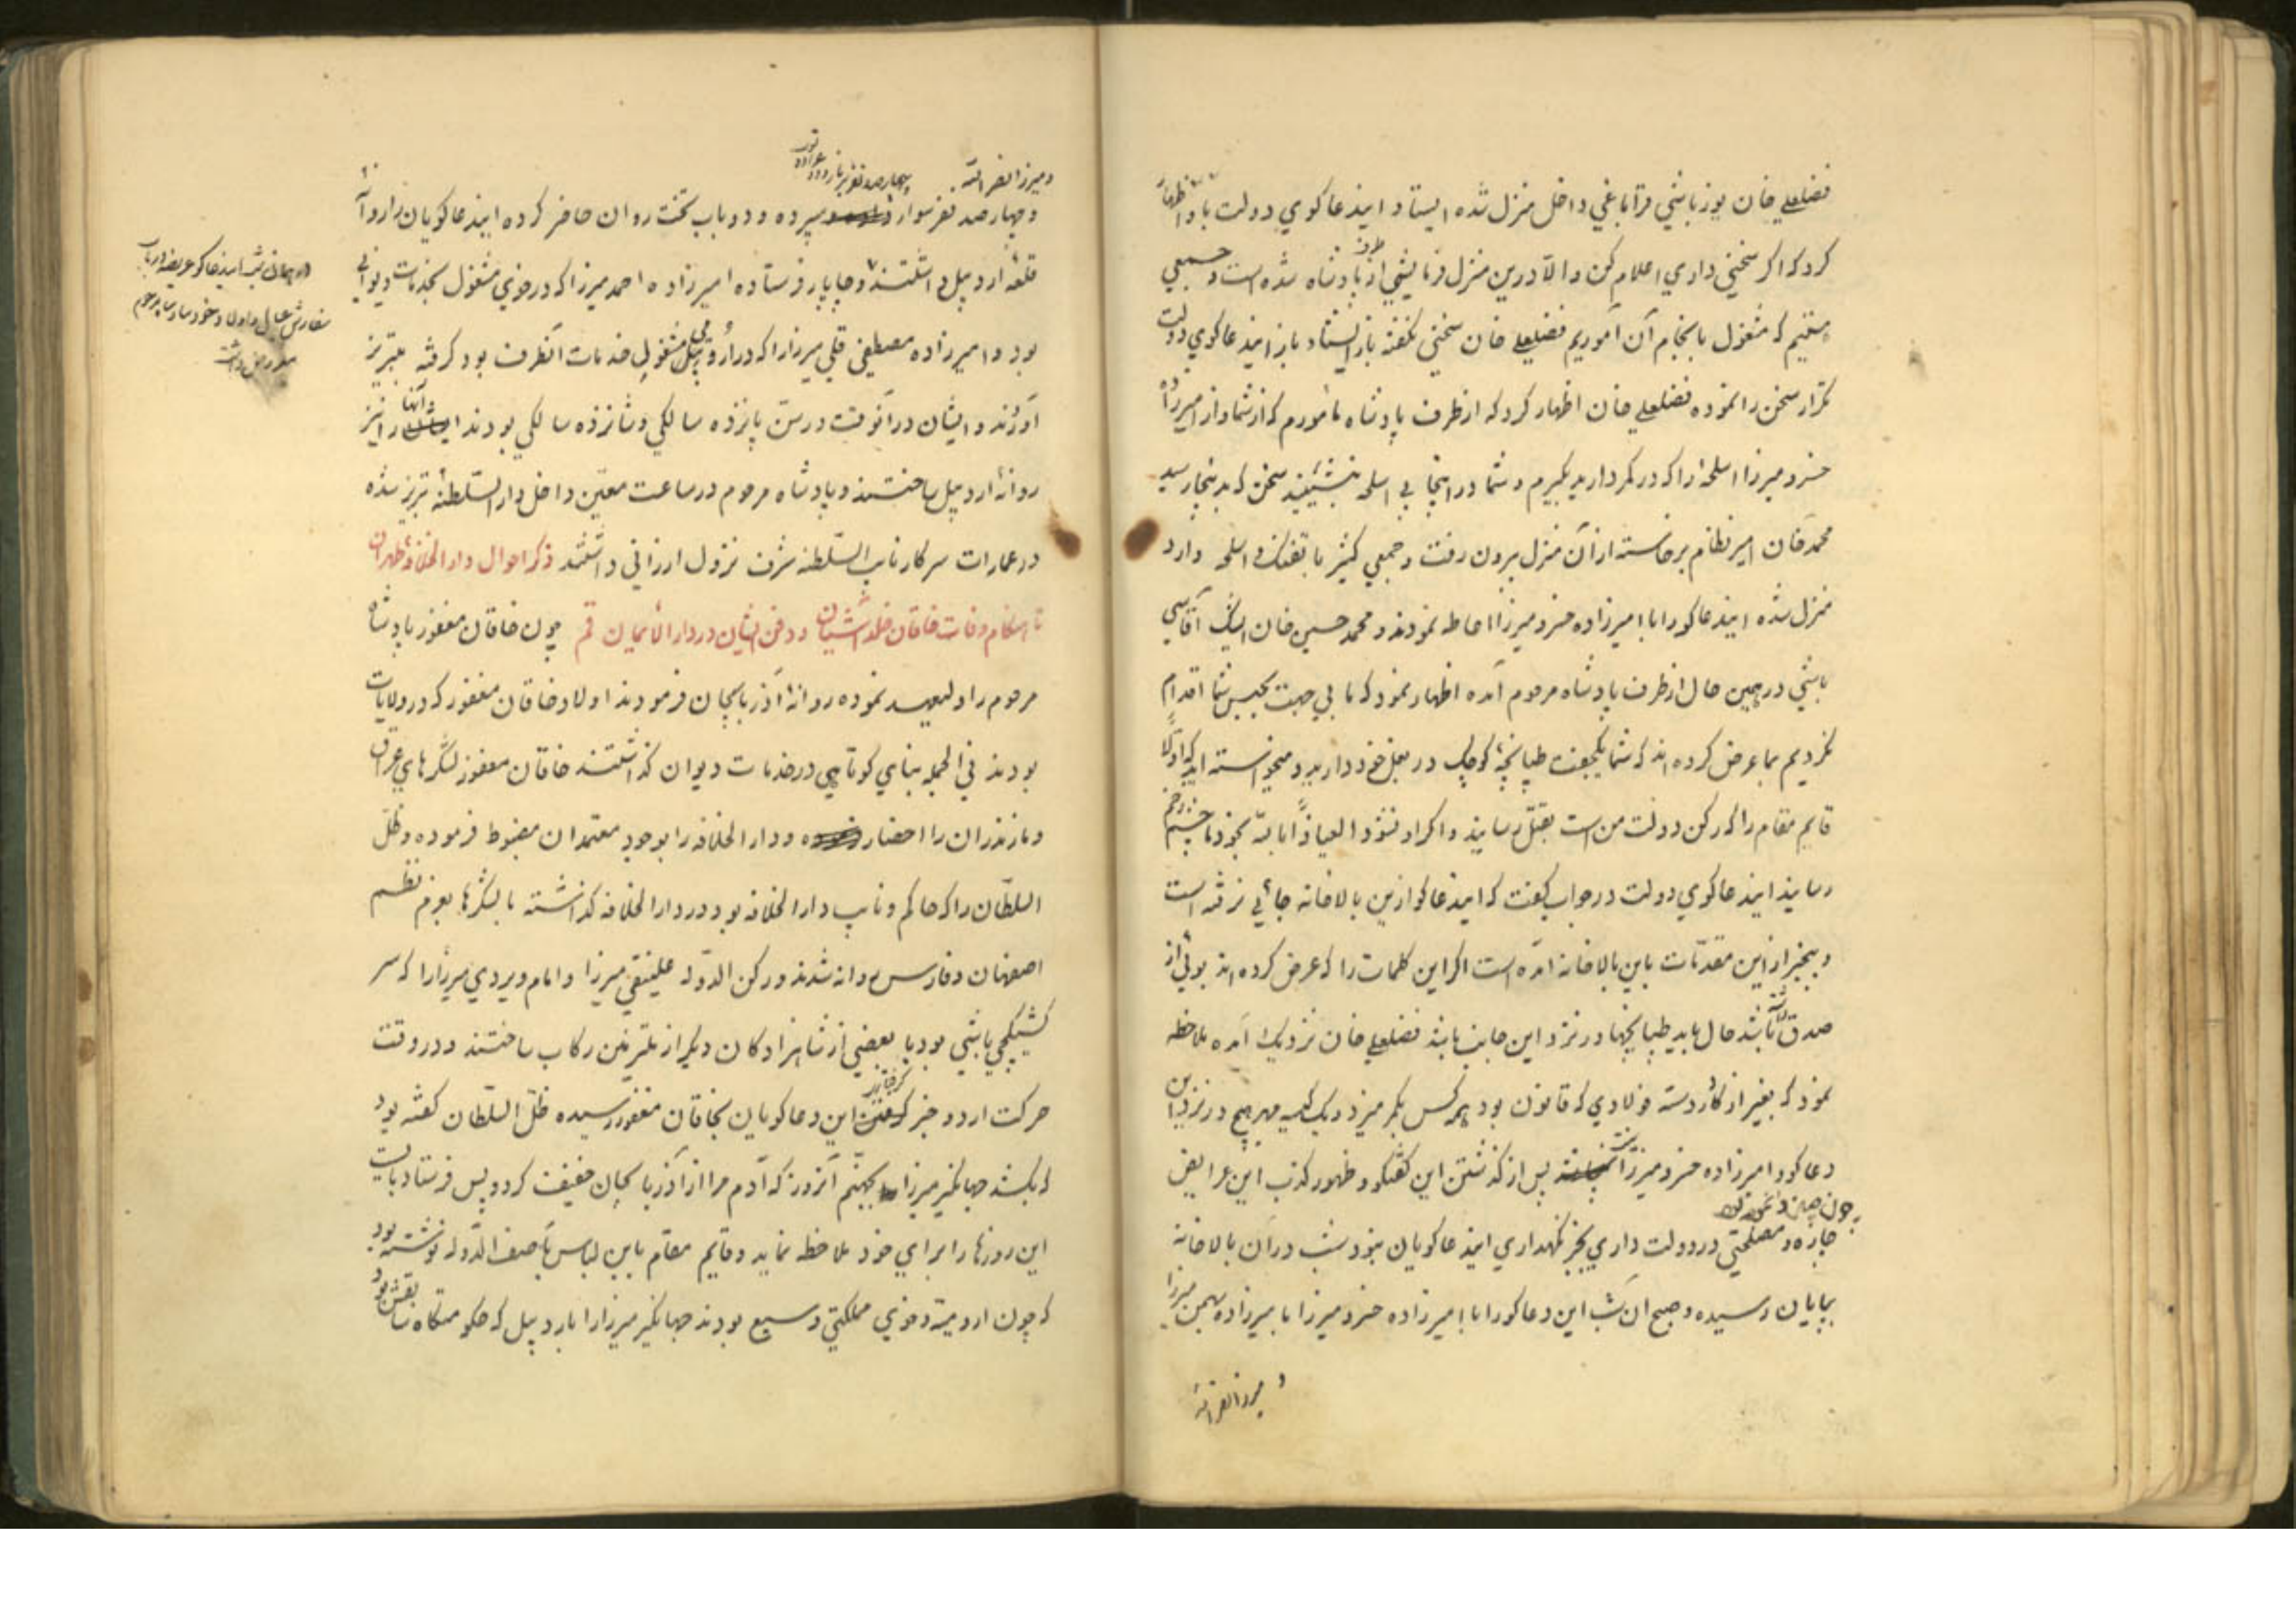 فضلعلی خان یوزباشی قراباغی داخل منزل شده ایستاد ایندعاکوی دولت باو اظهار
کرد که اکر سخنی داری اعلام کن والا درین منزل فرمایشی از طرف پادشاه شده است و جمعی
هستیم که مشغول بانجام آن آموریم فضلعلی خان سخنی نکفته باز ایستاد باز ایندعاکوی دولت
تکرار سخن را نموده فضلعلی خان اظهار کرد که از طرف پادشاه مأمورم که از شما و از امیرزاده
خسرو میرزا اسلحه را که در کمر دارید بکیرم و شما در اینجا بی اسلحه بنشینید سخن که بدینجا رسید
محمدخان امیر نظام برخاسته از آن منزل بیرون رفت و جمعی کثیر با تفنک و اسلحه وارد
منزل شده ایندعاکو را با امیرزاده خسرو میرزا احاطه نمودند و محمد حسین خان ایشک آقاسی
باشی در همین حال از طرف پادشاه مرحوم آمده اظهار نمود که ما بی جهت بحبس شما اقدام
نکردیم بما عرض کرده اند که شما یکجفت طپانچهٔ کوچک در بغل خود دارید و میخواسته اید که اولا
قایم مقام را که رکن دولت من است بقتل رسانید و اکر او نشود العیاذا بالله بخود ما چشم زخم
رسانید ایندعاکوی دولت در جواب کفت که اینذعاکو ازین بالاخانه جائی نرفته است
و بیخبر از این مقدمات باین بالاخانه آمده است اکر این کلمات را که عرض کرده اند بوئی از
صدق داشته باشد حال باید طپانچها در نزد این جانب باشد فضلعلی خان نزدیک آمده ملاحظه
نمود که بغیر از کارد دسته فولادی که قانون بود هر کس بکمر میزد و یک کیسه مهر هیچ در نزد این
دعاکو و امیرزاده خسرو میرزا نیست پس از کذشتن این کفتکو و ظهور کذب این عرایض
چون
چاره و مصلحتی در دولت داری بجز نکهداری اینذعاکویان نبود شب در آن بالاخانه
بپایان رسیده و صبح ان شب این دعاکو را با امیرزاده خسرو میرزا با میرزاده بهمن میرزا
و میرزا نصرالله
و میرزا نصرالله
و چهارصد نفر سوار سپرده و دو باب تخت روان حاضر کرده اینذعاکویان را روانهٔ
قلعهٔ اردبیل داشتند و چاپار فرستاده امیرزاده احمد میرزا که در خوی مشغول بخدمات دیوانی
بود و امیرزاده مصطفی قلی میرزا را که در اردبیل مشغول خدمات آنطرف بود کرفته بتبریز
آوردند و ایشان در آنوقت در سن پانزده سالکی و شانزده سالکی بودند آنها را نیز
روانهٔ اردبیل ساختند و پادشاه مرحوم در ساعت معین داخل دارالسلطنهٔ تبریز شده
در عمارات سرکار نایب السلطنه شرف نزول ارزانی داشتند ذکر احوال دارالخلافهٔ طهران
تا هنکام وفات خاقان خلد آشیان و دفن ایشان در دارالایمان قم چون خاقان مغفور پادشاه
مرحوم را ولیعهد نموده روانهٔ آذربایجان فرمودند اولاد خاقان مغفور که در ولایات
بودند فی الجمله بنای کوتاهی در خدمات دیوان کذاشتند خاقان مغفور لشکرهای عراق
و مازندران را احضار و دارالخلافه را بوجود معتمدان مضبوط فرموده و ظل
السلطان را که حاکم و نایب دارالخلافه بود در دارالخلافه کذاشته با لشکرها بعزم نظم
اصفهان و فارس روانه شدند و رکن الدوله علینقی میرزا و امام ویردی میرزا را که سر
کشیکچی باشی بود با بعضی از شاهزادکان دیکر از ملتزمین رکاب ساختند و در وقت
حرکت اردو خبر کرفتاری این دعاکویان بخاقان مغفور رسیده ظل السلطان کفته بود
که بکشند جهانکیر میرزا بجهنم آنروز که آدم مرا از آذربایجان خفیف کرد و پس فرستاد بایست
این روزها را برای خود ملاحظه نماید و قایم مقام باین لباس بآصف الدوله نوشته بود
که چون ارومیه و خوی مملکتی وسیع بودند جهانکیر میرزا را باردبیل که حکومتکاه سابقش بود